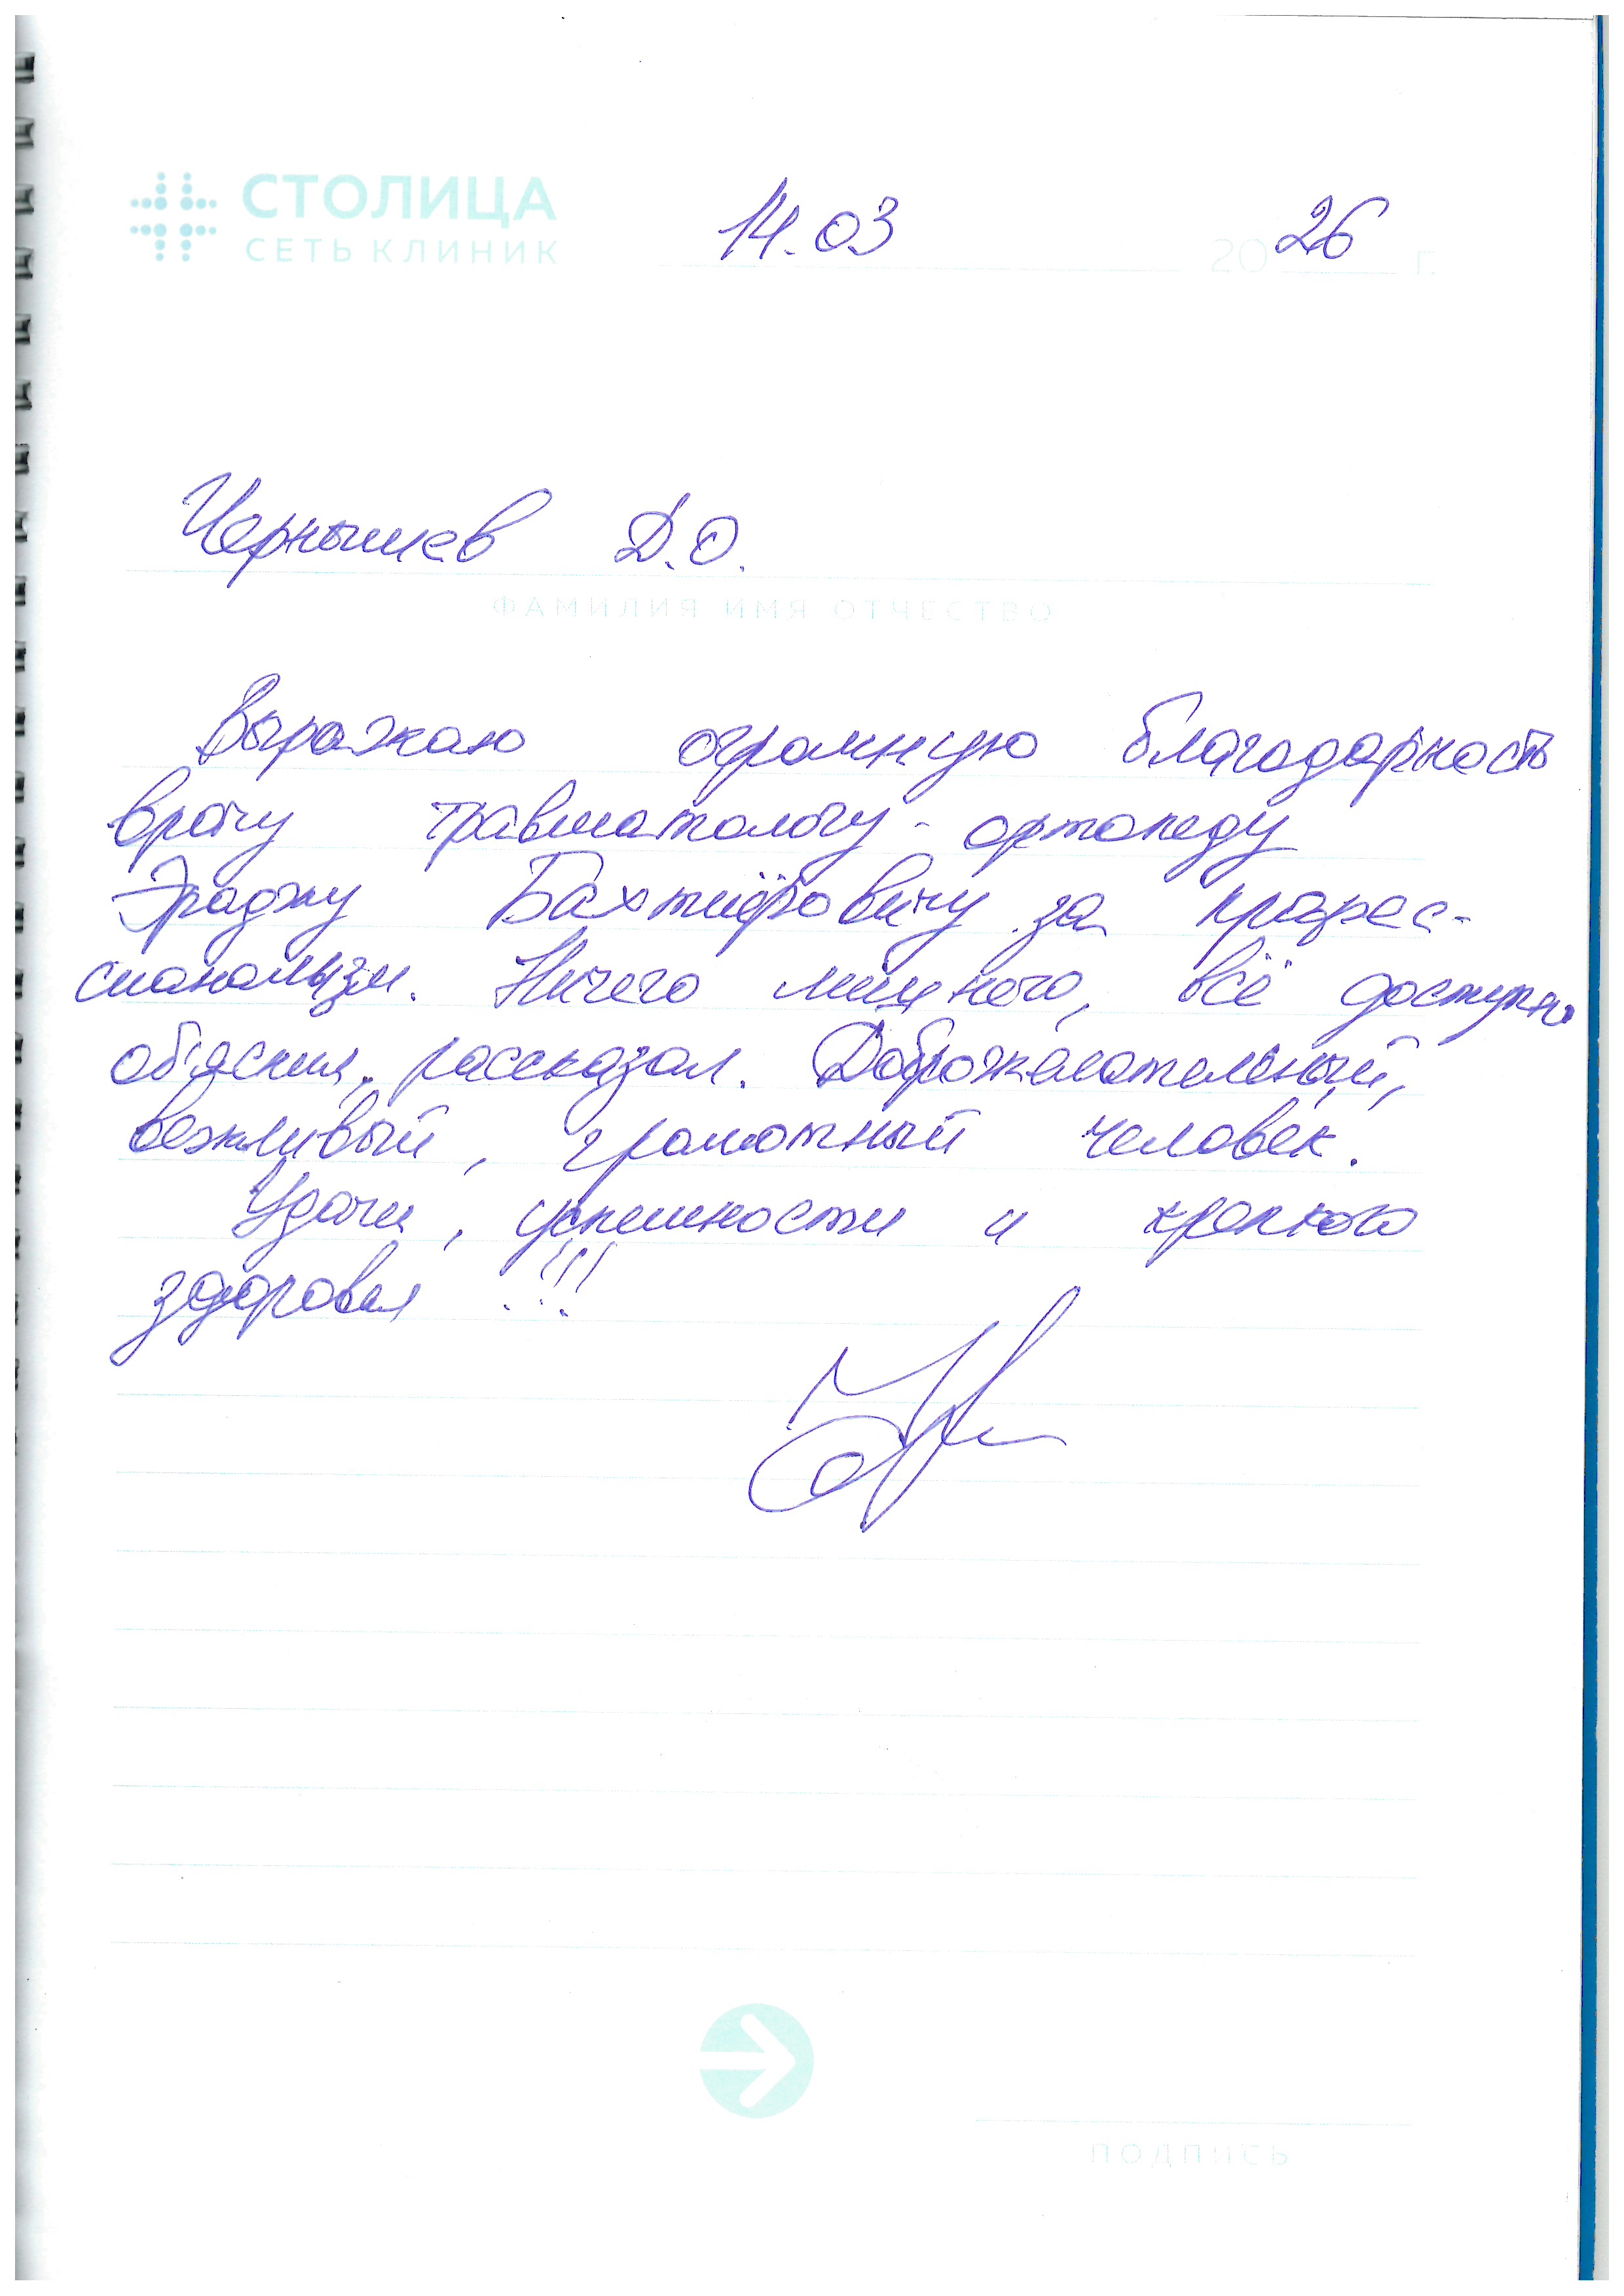 СТОЛИЦА
СЕТЬ КЛИНИК
14.03 2026 г.
Чернышев Д.О.
ФАМИЛИЯ ИМЯ ОТЧЕСТВО
Выражаю огромную благодарность
врачу травматологу-ортопеду
Эраджу Бахтиёровичу за профес-
сионализм. Ничего лишнего, всё доступно
объяснил, рассказал. Доброжелательный,
вежливый, грамотный человек.
Удачи, успешности и крепкого
здоровья!!!
ПОДПИСЬ